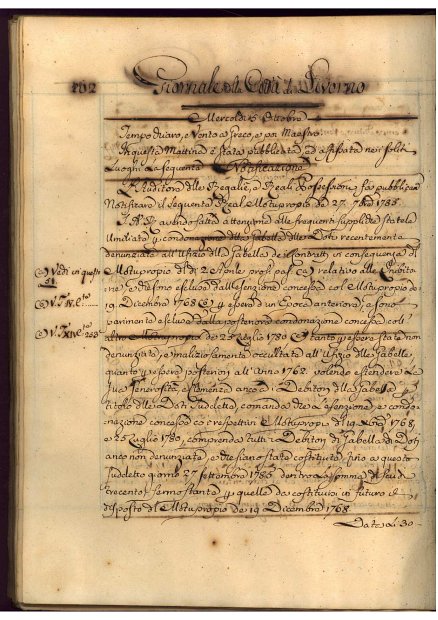 102 Giornale della Città di Livorno
Mercoldì 5 Ottobre
Tempo vario, e Vento a Greco, e poi Maestro
In questa Mattina è stata pubblicata, ed affissata nei soliti
Luoghi la seguente Notificazione
L'Auditore delle Regalie, e Reali Possessioni fa pubblicare
Notificare il seguente Real Motuproprio de 27. 7bre 1785.
S. A. R. avendo fatto attenzione alle frequenti suppliche statele
Umiliate condonazione della Gabella delle Doti recentemente
denunziata all'Ufizio della Gabella dei Contratti in conseguenza di
Motuproprio del dì 2 Aprile pross. pas. relativo alle
e che sono escluse dall'Esenzione concessa col Motuproprio de
19. Dicembre 1768 per essere di un Epoca anteriore, e sono
parimente escluse dalla posteriore condonazione concessa coll'
altro Motuproprio de 25 Luglio 1780 tanto per essere state non
denunziate, e maliziosamente occultate all'Ufizio delle Gabelle,
quanto per essere posteriori all'Anno 1762. volendo estendere La
Sua Generosità, e Clemenza ancora i Debitori della Gabella
titolo delle Doti suddetta, comanda che L'esenzione, e condo-
nazione concessa co i respettivi Motuproprj de 19. 1768,
e 25 Luglio 1780, comprenda tutti i Debitori di Gabella di Doti
anco non denunziata, e che siano state costituite fino a questo
suddetto giorno 27 Settembre 1785 dentro La Somma di Scudi
trecento; ferma stante per quelle da costituirsi in futuro il
disposto del Motuproprio de 19 Dicembre 1768
Dato li 30-
Vedi in questo
V. T. IV. c.
V. T. XIV. c. 253